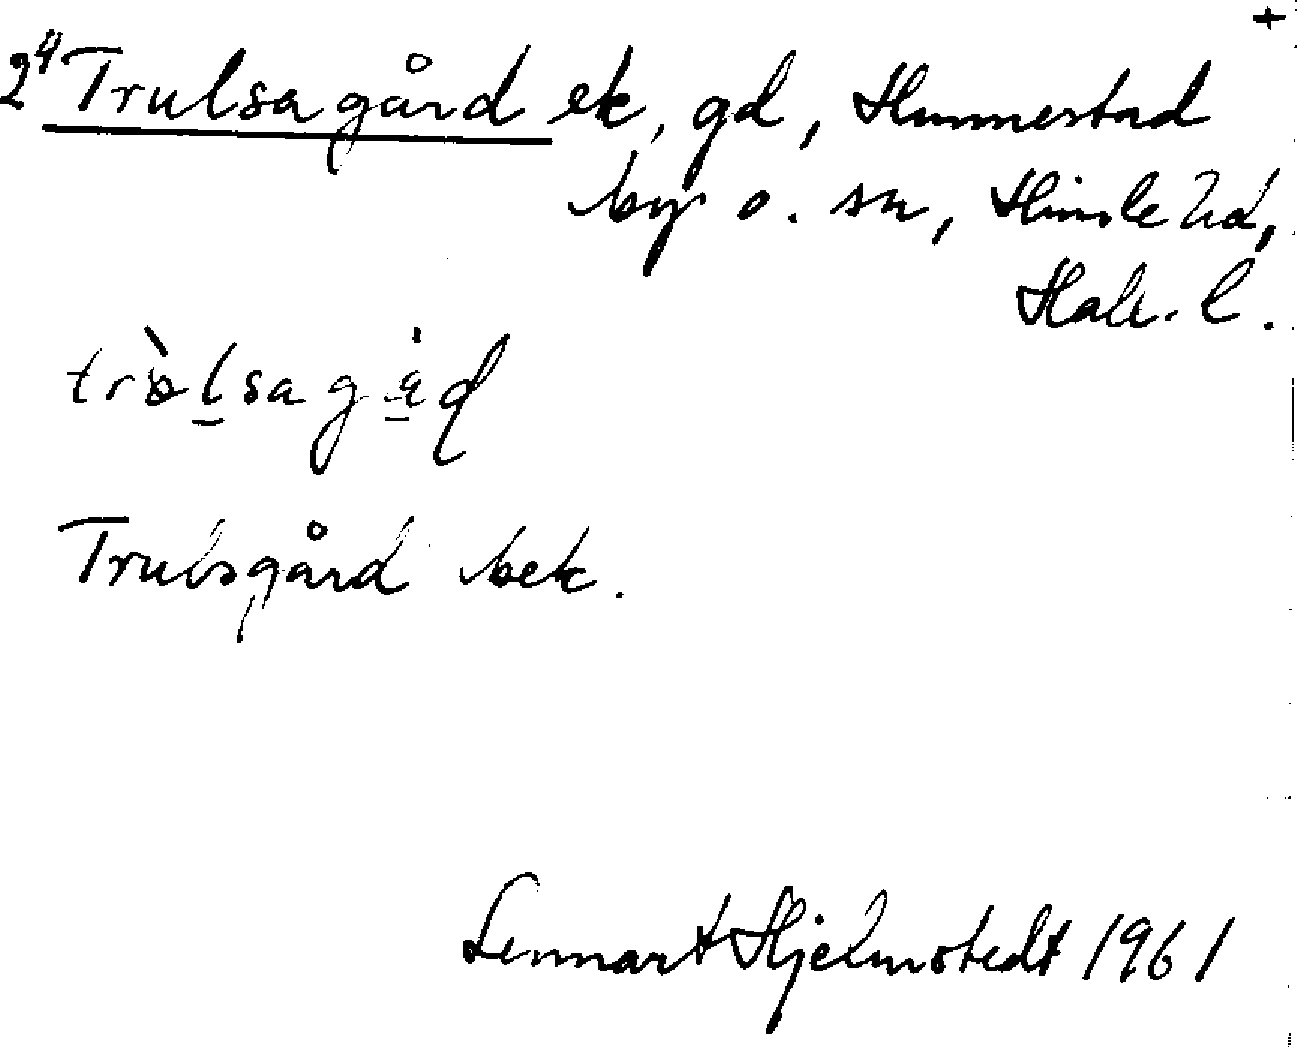 +
2⁴ Trulsagård ek, gd, Hunnestad
by o. sn, Himle hd,
Hall. l.
Trulsgård bek.
Lennart Hjelmstedt 1961